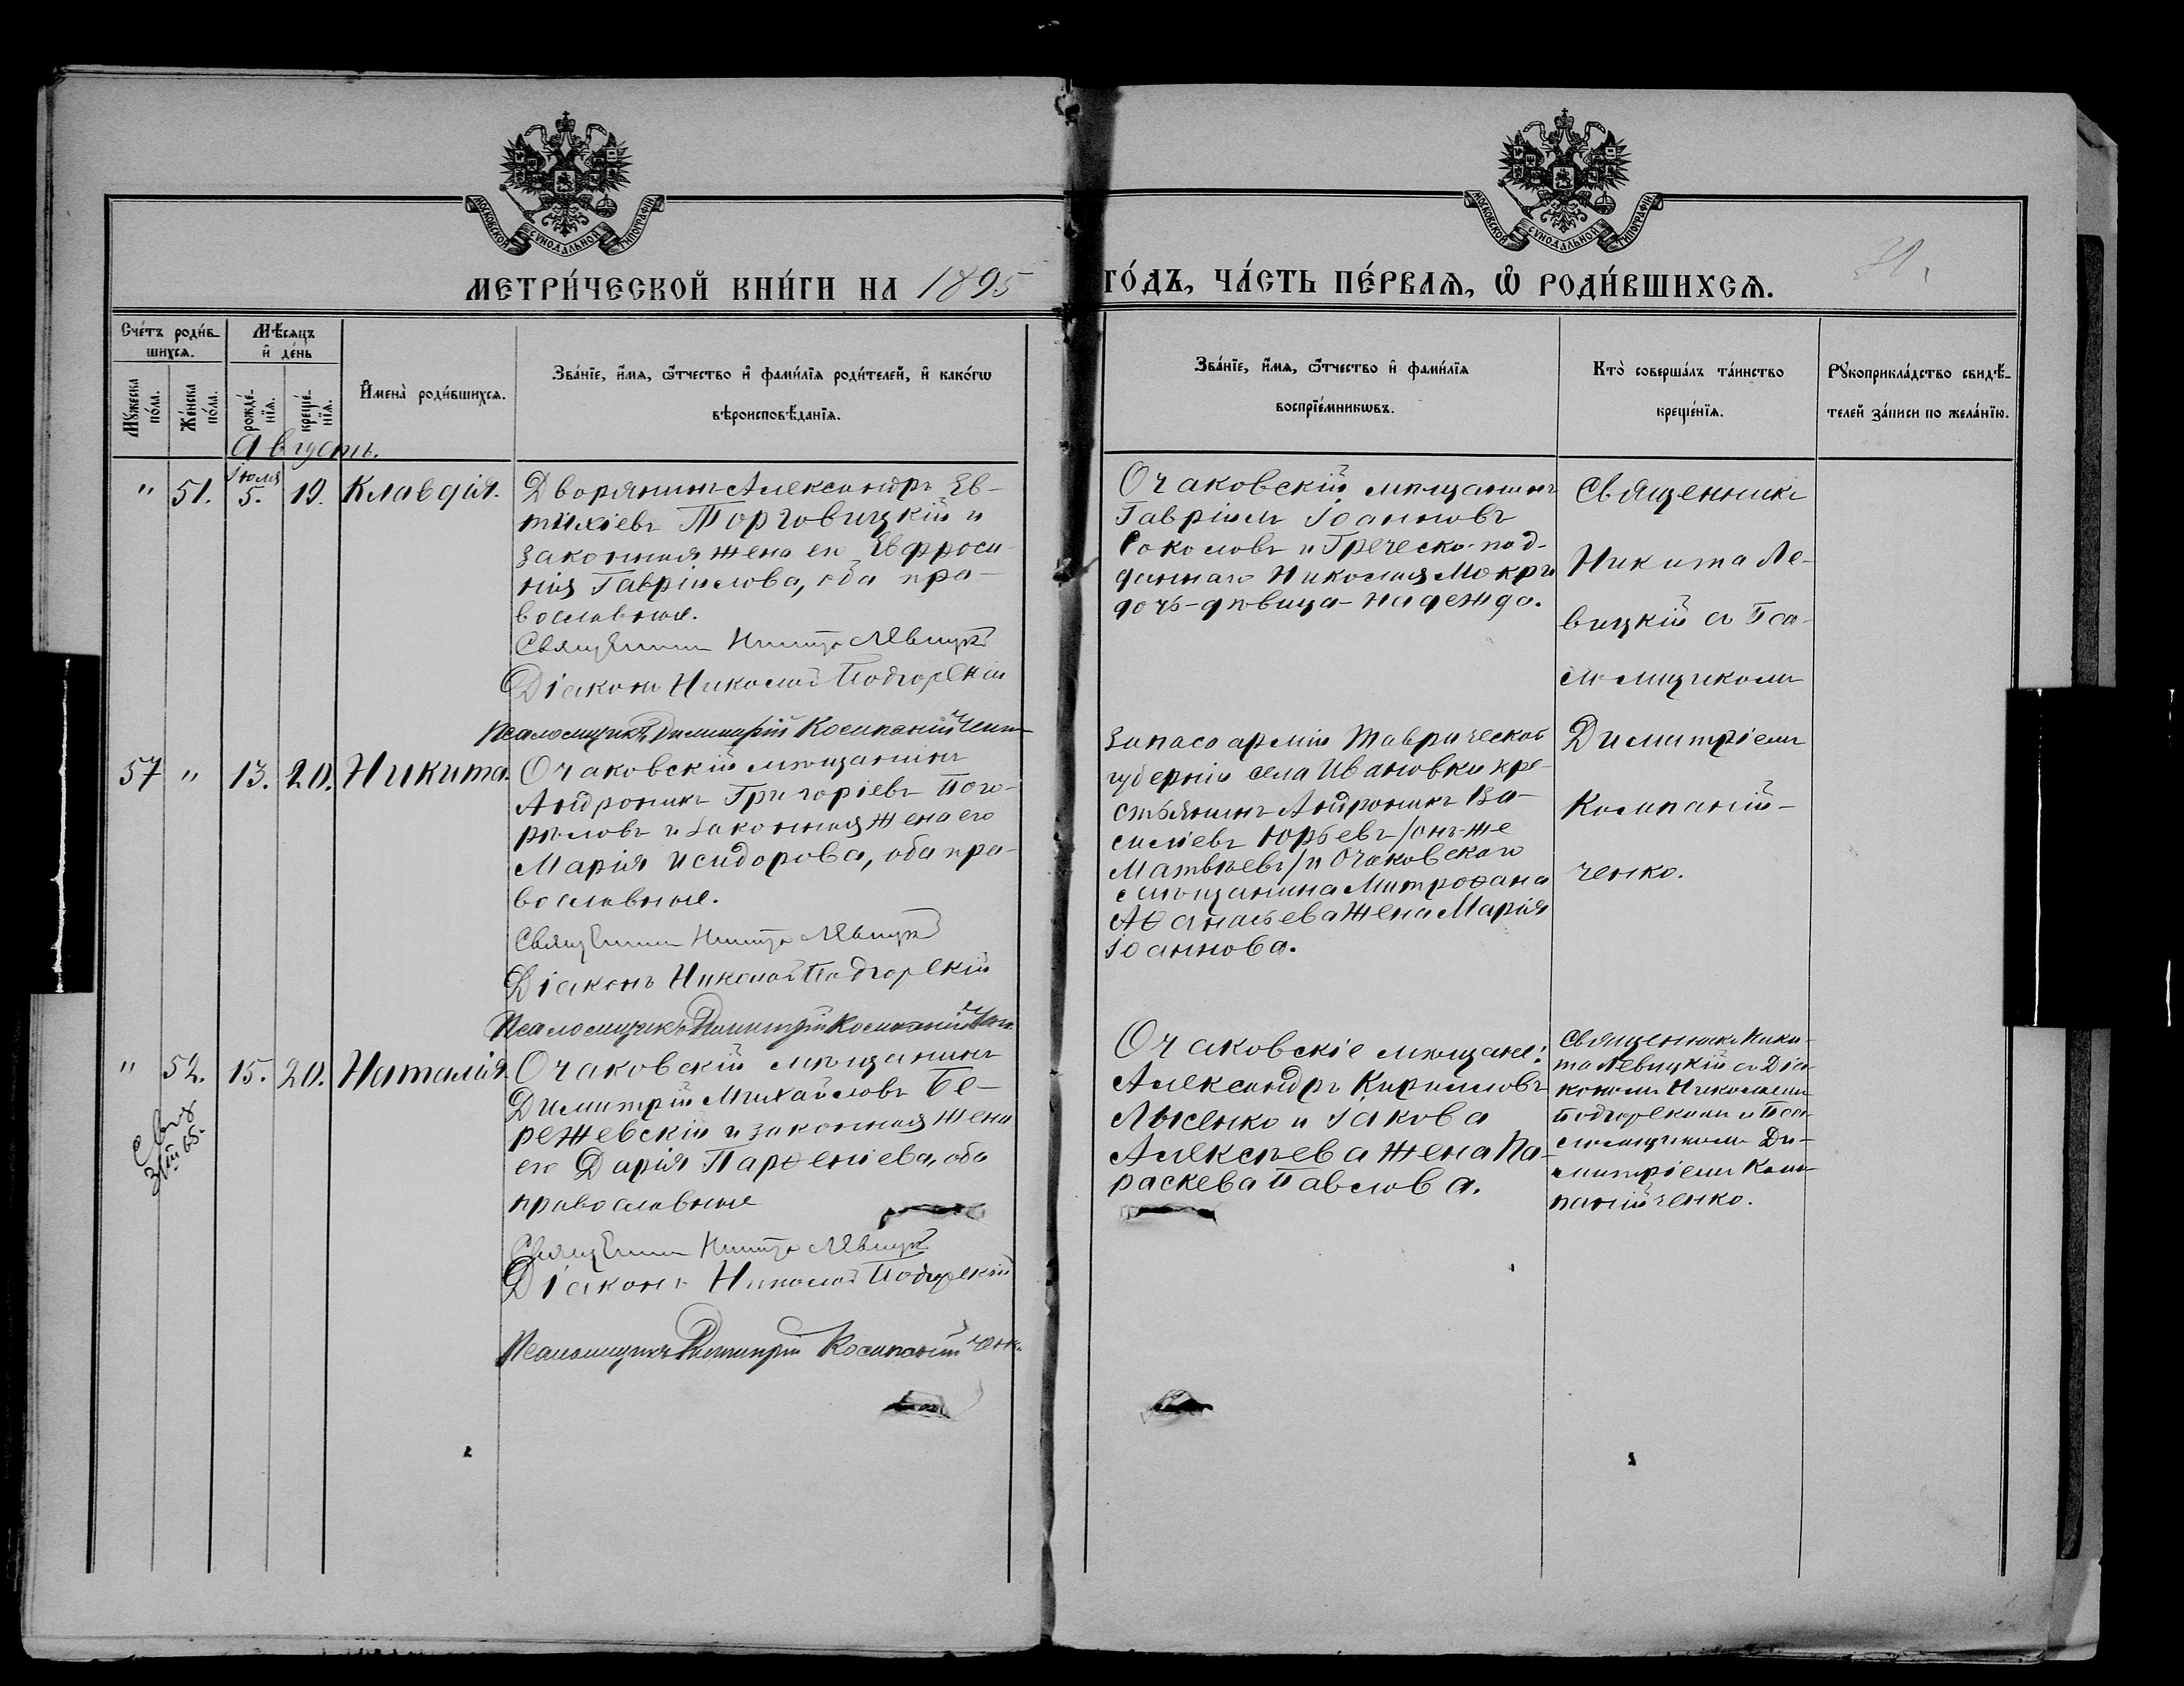 МОСКОВСКОЙ СУНОДАЛЬНОЙ ТИПОГРАФІИ
МОСКОВСКОЙ СУНОДАЛЬНОЙ ТИПОГРАФІИ
МЕТРИ́ЧЕСКОЙ КНИ́ГИ НА 1895 ГО́ДЪ, ЧА́СТЬ ПЕ́РВАѦ, Ѽ РОДИ́ВШИХСѦ.
Сче́тъ роди́в-
шихсѧ.
Мꙋ́жеска по́ла.
Же́нска по́ла.
Мѣ́сѧцъ
и҆ де́нь
рожде́-
нїѧ.
креще́-
нїѧ.
И҆мена̀ роди́вшихсѧ.
Зва́нїе, и҆́мѧ, ѻ҆́тчество и҆ фами́лїѧ роди́телей, и҆ како́гѡ
вѣроисповѣ́данїѧ.
Зва́нїе, и҆́мѧ, ѻ҆́тчество и҆ фами́лїѧ
воспрїе́мникѡвъ.
Кто̀ соверша́лъ та́инство
креще́нїѧ.
Рꙋкоприкла́дство свидѣ́-
телей за́писи по жела́нїю.
Августъ.
" 51. Іюля 5. 19. Клавдія.
Дворянинъ Александръ Ев-
тихіевъ Торговицкій и
законная жена его Евфроси-
нія Гавріилова, оба пра-
вославные.
Священникъ Никита Левицкій
Діаконъ Николай Подгорскій
Псаломщикъ Димитрій Компанійченко
Очаковскій мѣщанинъ
Гавріилъ Іоанновъ
Соколовъ и Греческо-под-
даннаго Николая Мокри
дочь-дѣвица-Надежда.
Священникъ
Никита Ле-
вицкій съ Пса-
ломщикомъ
Димитріемъ
Компаній-
ченко.
57 " 13. 20. Никита.
Очаковскій мѣщанинъ
Андроникъ Григоріевъ Пого-
рѣловъ и законная жена его
Марія Исидорова, оба пра-
вославные.
Священникъ Никита Левицкій
Діаконъ Николай Подгорскій
Псаломщикъ Димитрій Компанійченко
Запаса арміи Таврической
губерніи села Ивановки кре-
стьянинъ Андроникъ Ва-
силіевъ Юрьевъ /онъ-же
Матвѣевъ/ и Очаковскаго
мѣщанина Митрофана
Аѳанасьева жена Марія
Іоаннова.
" 52. 15. 20. Наталія.
Очаковскій мѣщанинъ
Димитрій Михайловъ Бе-
режевскій и законная жена
его Дарія Парѳеніева, оба
православные
Священникъ Никита Левицкій
Діаконъ Николай Подгорскій
Псаломщикъ Димитрій Компанійченко
Очаковскіе мѣщане:
Александръ Кирилловъ
Лысенко и Іакова
Алексѣева жена Па-
раскева Павлова.
Священникъ Ники-
та Левицкій съ Діа-
кономъ Николаемъ
Подгорскимъ и Пса-
ломщикомъ Ди-
митріемъ Ком-
панійченко.